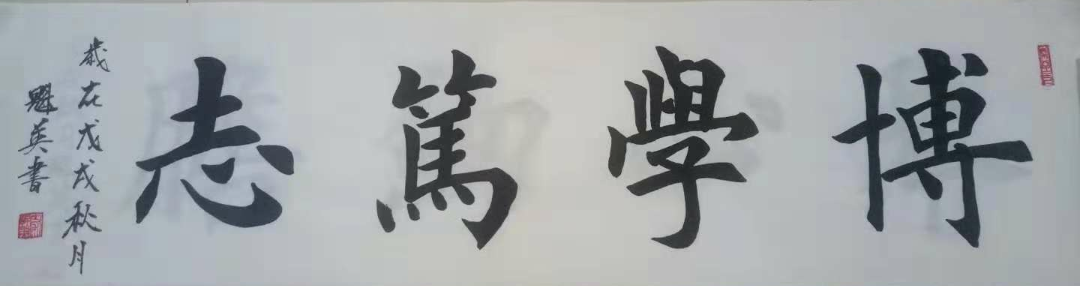 博學篤志
歲在戊戌秋月
魁英書